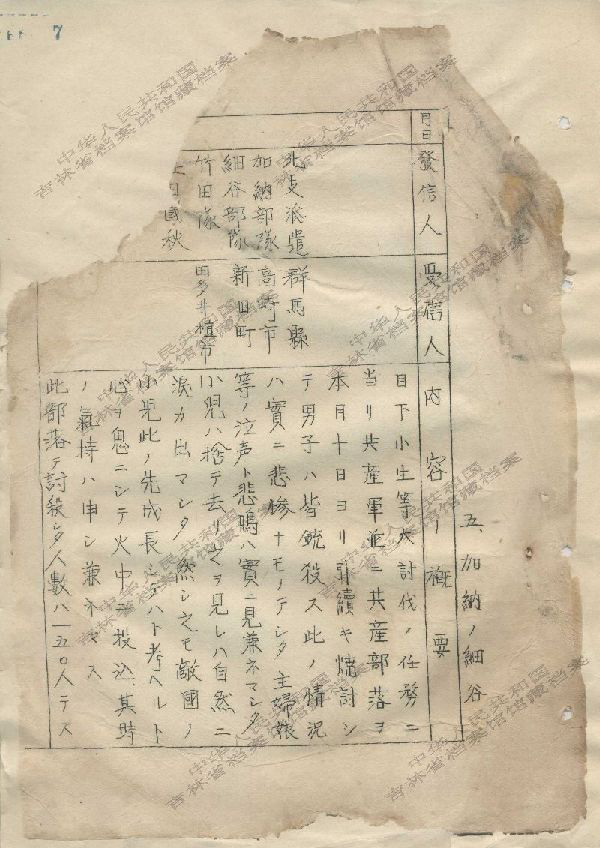 五、加納ノ細谷
月日
發信人
受信人
内容ノ概要
北支派遣
加納部隊
細谷部隊
竹田隊
田國秋
群馬縣
高崎市
新田町
目下小生等大討伐ノ任務ニ
当リ共産軍並ニ共産部落ヲ
本月十日ヨリ引続キ焼討シ
テ男子ハ皆銃殺ス此ノ情況
ハ實ニ悲惨ナモノデシタ主婦娘
等ノ泣声ト悲鳴ハ實ニ見兼ネマシタ
小児ハ捨テ去リ之ヲ見レハ自然ニ
涙カ出マシタ然シ之モ敵國ノ
小児此ノ先成長シテハト考ヘレト
心ヲ鬼ニシテ火中ニ投込其時
ノ氣持ハ申シ兼ネマス
此部落テ討殺シタ人数ハ一五〇人テス
7
中华人民共和国
吉林省档案馆馆藏档案